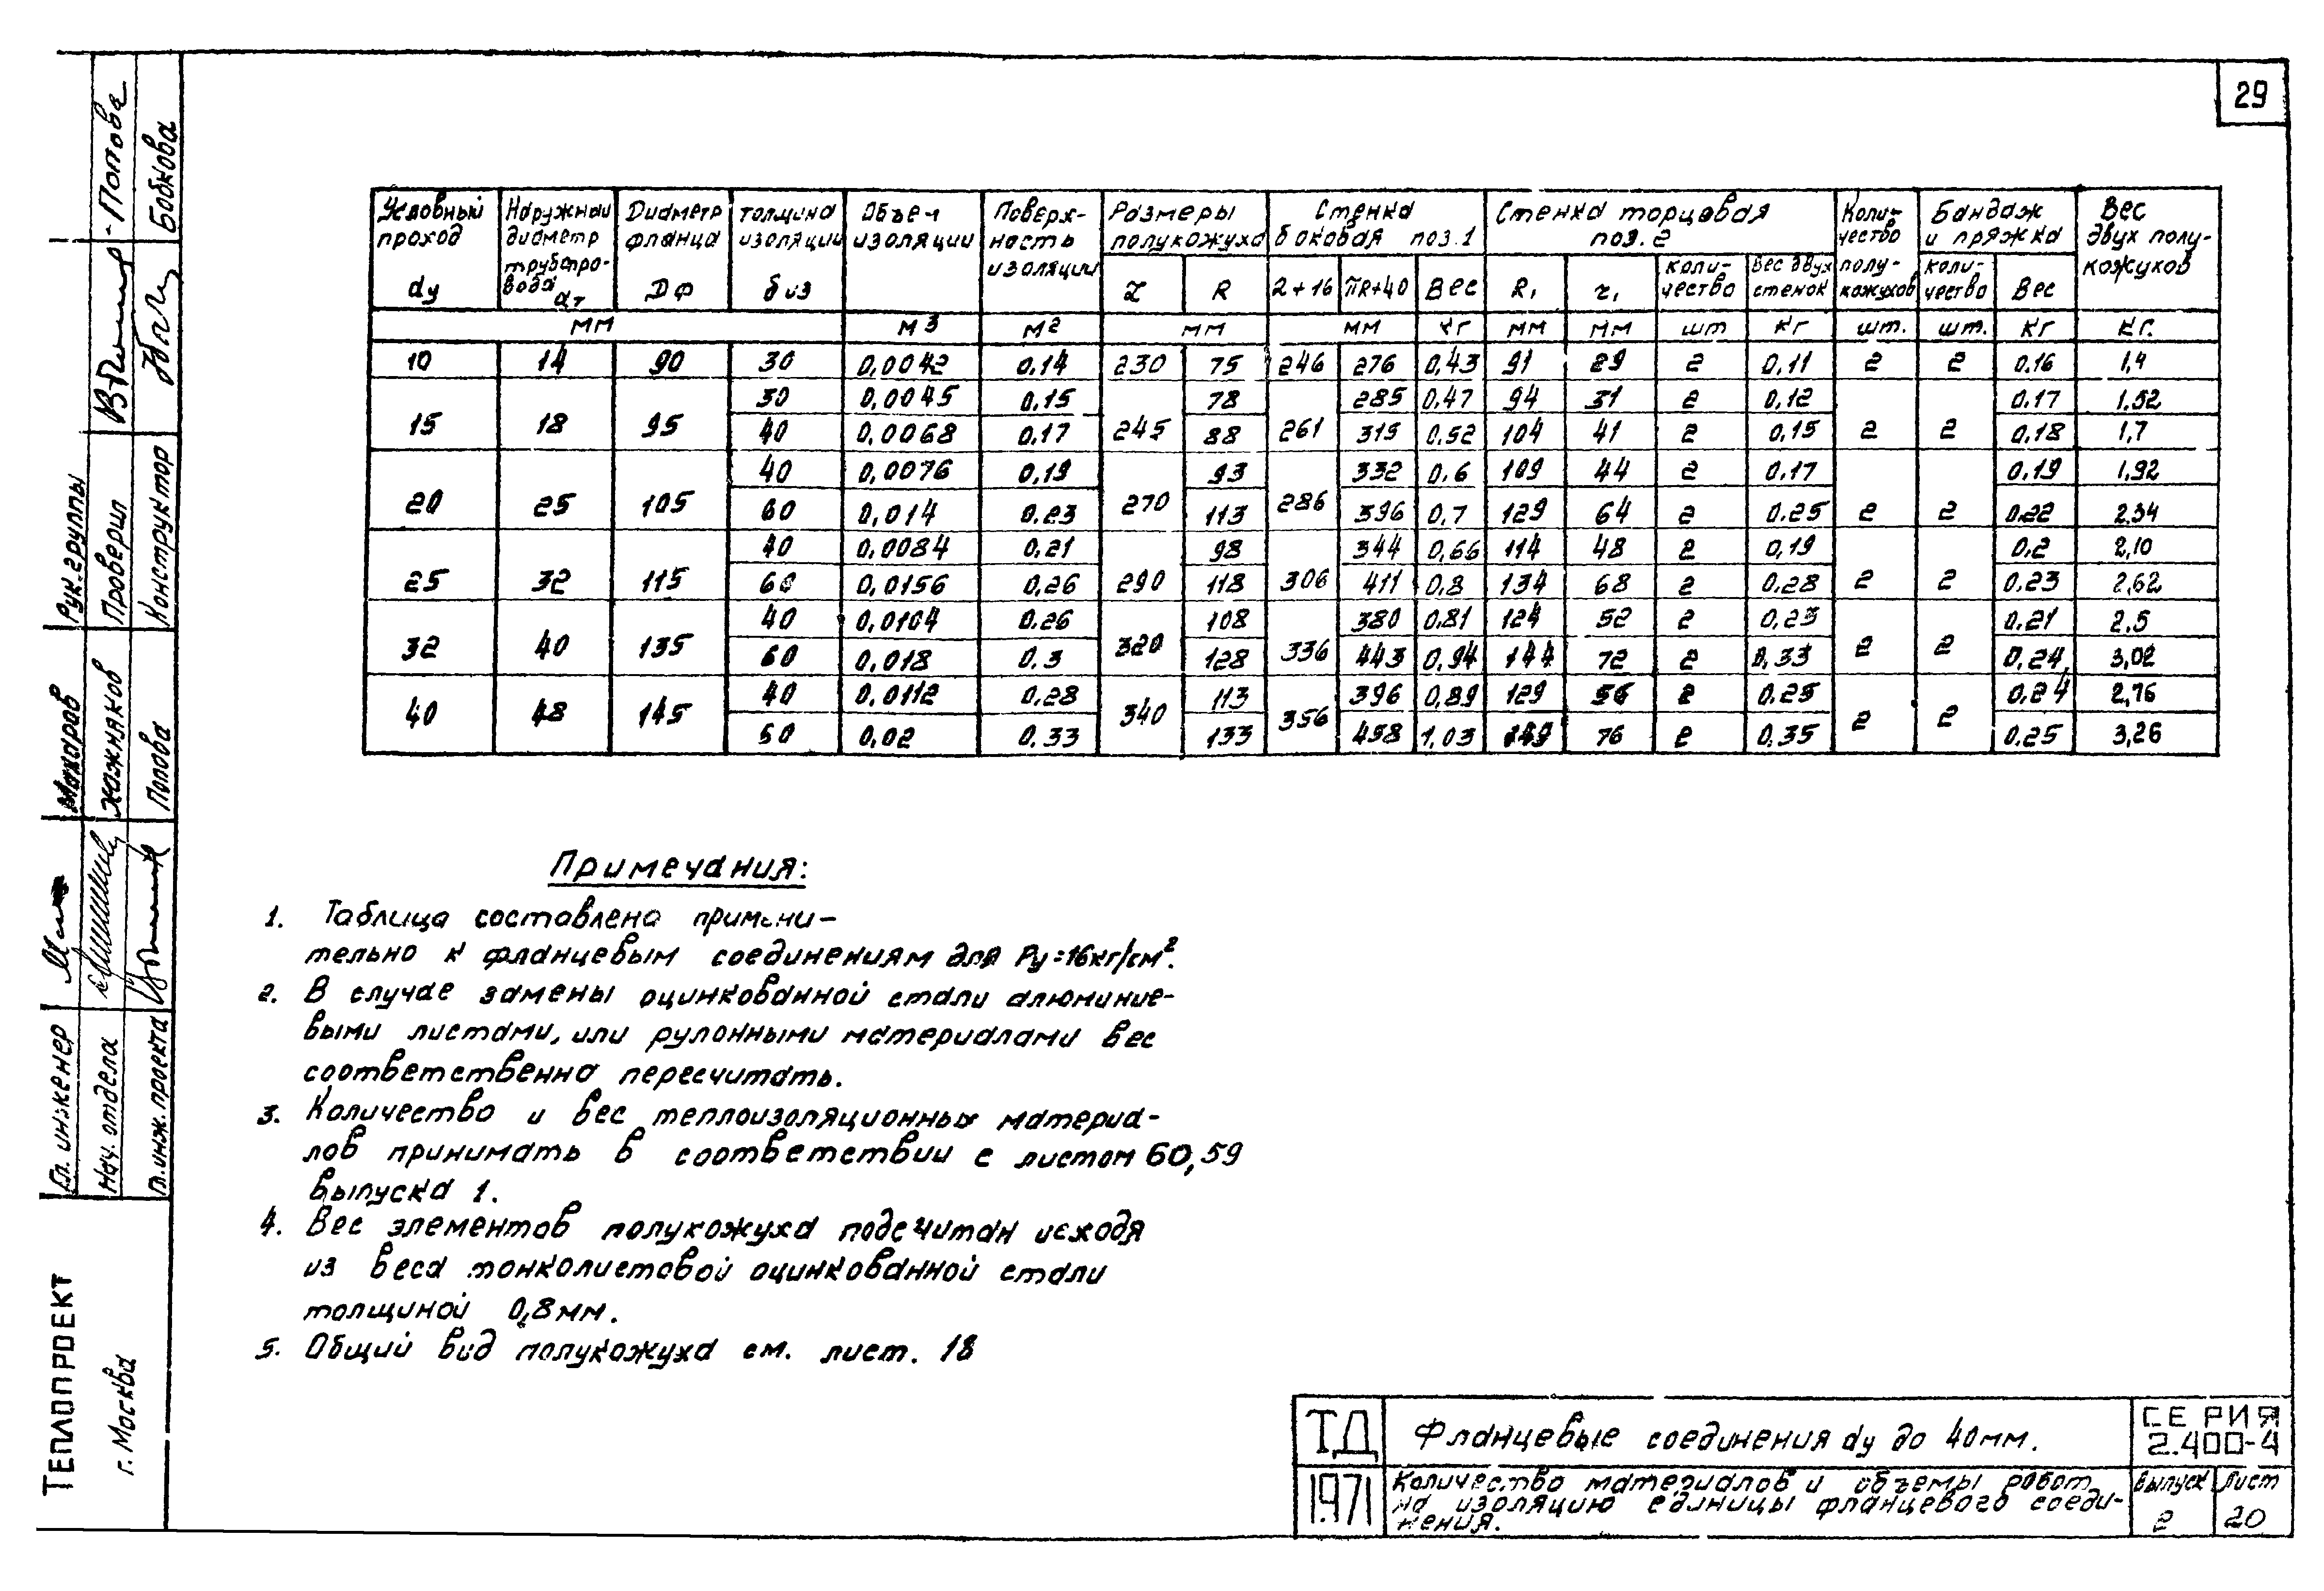 29
Условный проход dу
Наружный диаметр трубопровода dт
Диаметр фланца Dф
толщина изоляции δиз
Объем изоляции
Поверхность изоляции
Размеры полукожуха
Стенка боковая поз. 1
Стенка торцовая поз. 2
Количество полукожухов
Бандаж и пряжка
Вес двух полукожухов
R
2+16 πR+40 Вес R₁ r₁ количество Вес двух стенок количество Вес
мм м3 м2 мм мм кг мм мм шт кг шт. шт. кг кг.
10 14 90 30 0,0042 0,14 230 75 246 276 0,43 91 29 2 0,11 2 2 0,16 1,4
15 18 95 30 0,0045 0,15 245 78 261 285 0,47 94 31 2 0,12 2 2 0,17 1,52
40 0,0068 0,17 88 315 0,52 104 41 2 0,15 0,18 1,7
20 25 105 40 0,0076 0,19 270 93 286 332 0,6 109 44 2 0,17 2 2 0,19 1,92
60 0,014 0,23 113 396 0,7 129 64 2 0,25 0,22 2,34
25 32 115 40 0,0084 0,21 290 98 306 344 0,66 114 48 2 0,19 2 2 0,2 2,10
60 0,0156 0,26 118 411 0,8 134 68 2 0,28 0,23 2,62
32 40 135 40 0,0104 0,26 320 108 336 380 0,81 124 52 2 0,23 2 2 0,21 2,5
60 0,018 0,3 128 443 0,94 144 72 2 0,33 0,24 3,02
40 48 145 40 0,0112 0,28 340 113 356 396 0,89 129 56 2 0,25 2 2 0,24 2,76
60 0,02 0,33 133 458 1,03 149 76 2 0,35 0,25 3,26
Примечания:
1. Таблица составлена примени-
тельно к фланцевым соединениям для Ру=16кг/см².
2. В случае замены оцинкованной стали алюминие-
выми листами, или рулонными материалами вес
соответственно пересчитать.
3. Количество и вес теплоизоляционных материа-
лов принимать в соответствии с листом 60,59
выпуска 1.
4. Вес элементов полукожуха подсчитан исходя
из веса тонколистовой оцинкованной стали
толщиной 0,8мм.
5. Общий вид полукожуха см. лист. 18
ТД Фланцевые соединения dу до 40мм. СЕРИЯ 2.400-4
1971 Количество материалов и объемы работ
на изоляцию единицы фланцевого соеди-
нения.
Выпуск 2 Лист 20
ТЕПЛОПРОЕКТ
г. Москва
Гл. инженер
Нач. отдела
Гл. инж. проекта
Попова
Рук. группы
Проверил
Конструктор
Попова
Бобкова